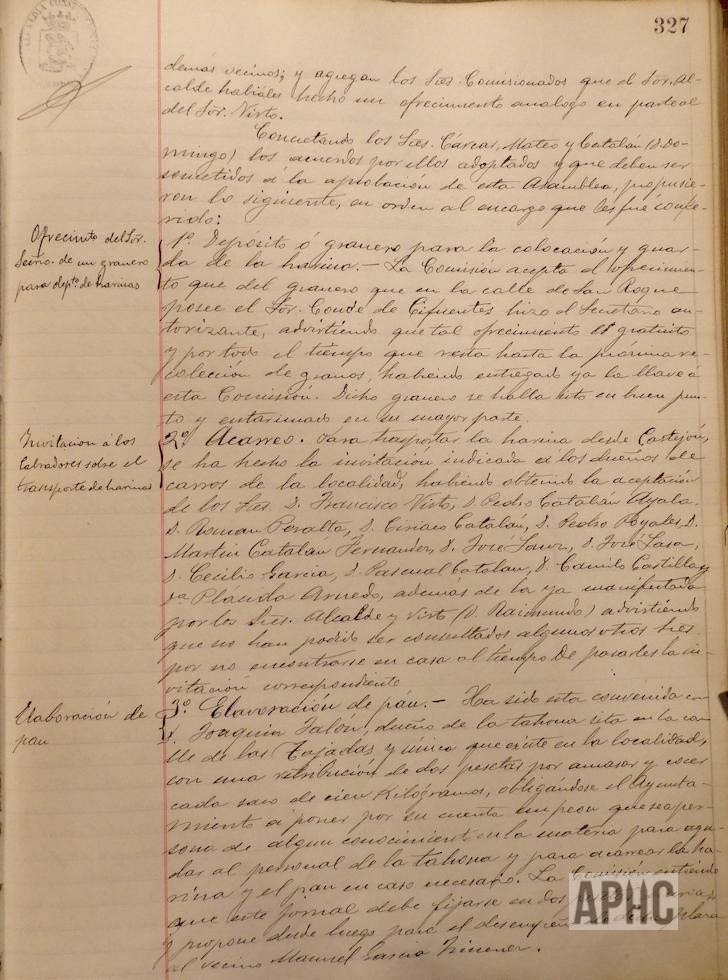 327
demás vecinos; y agregan los Sres. Comisionados que el Sor. Al-
calde habíales hecho un ofrecimiento análogo en parte al
del Sor. Virto.
Concretando los Sres. Cárcar, Mateo y Catalán (D. Do-
mingo) los acuerdos por ellos adoptados y que deben ser
sometidos á la aprobación de esta Asamblea, propusie-
ron lo siguiente, en orden al encargo que les fué confe-
rido:
Ofrecimto del Sor.
Secrio. de un granero
para depto. de harinas
1º Depósito ó granero para la colocación y guar-
da de la harina. — La Comisión acepta el ofrecimien-
to que del granero que en la calle de San Roque
posee el Sor. Conde de Cifuentes hizo el Secretario au-
torizante, advirtiendo que tal ofrecimiento es gratuito
y por todo el tiempo que resta hasta la próxima re-
colección de granos, habiendo entregado ya la llave á
esta Comisión. Dicho granero se halla sito en buen pun-
to y entarimado en su mayor parte.
Invitación á los
Labradores sobre el
transporte de harinas
2º Acarreo. Para trasportar la harina desde Castejón,
se ha hecho la invitación indicada á los dueños de
carros de la localidad, habiendo obtenido la aceptación
de los Sres. D. Francisco Virto, D. Pedro Catalán Ayala,
D. Roman Peralta, D. Ciriaco Catalán, D. Pedro Poyales, D.
Martin Catalán Fernandez, D. José Sanz, D. José Lasa,
D. Cecilio Garcia, D. Pascual Catalan, D. Camilo Castilla y
Dª Plácida Arnedo, además de la ya manifestada
por los Sres. Alcalde y Virto (D. Raimundo) advirtiendo
que no han podido ser consultados algunos otros Sres.
por no encontrarse en casa al tiempo de pasarles la in-
vitación correspondiente
Elaboración de
pan
3º Elavoración de pan. — Ha sido esta convenida con
D. Joaquin Jalón, dueño de la tahona sita en la ca-
lle de las Tajadas y única que existe en la localidad,
con una retribución de dos pesetas por amasar y cocer
cada saco de cien Kilógramos, obligándose el Ayunta-
miento á poner por su cuenta un peon que sea per-
sona de algun conocimiento en la materia para ayu-
dar al personal de la tahona y para acarrear la ha-
rina y el pan en caso necesario. La Comisión entiende
que este jornal debe fijarse en dos
y propone desde luego para el desempeño
al vecino Manuel Garcia Ximenez.
APHC